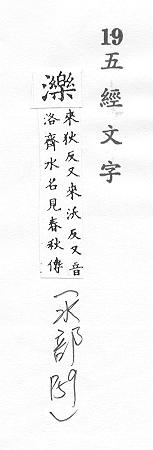 19五經文字
濼
來狄反又來沃反又音
洛齊水名見春秋傳
(水部P59)